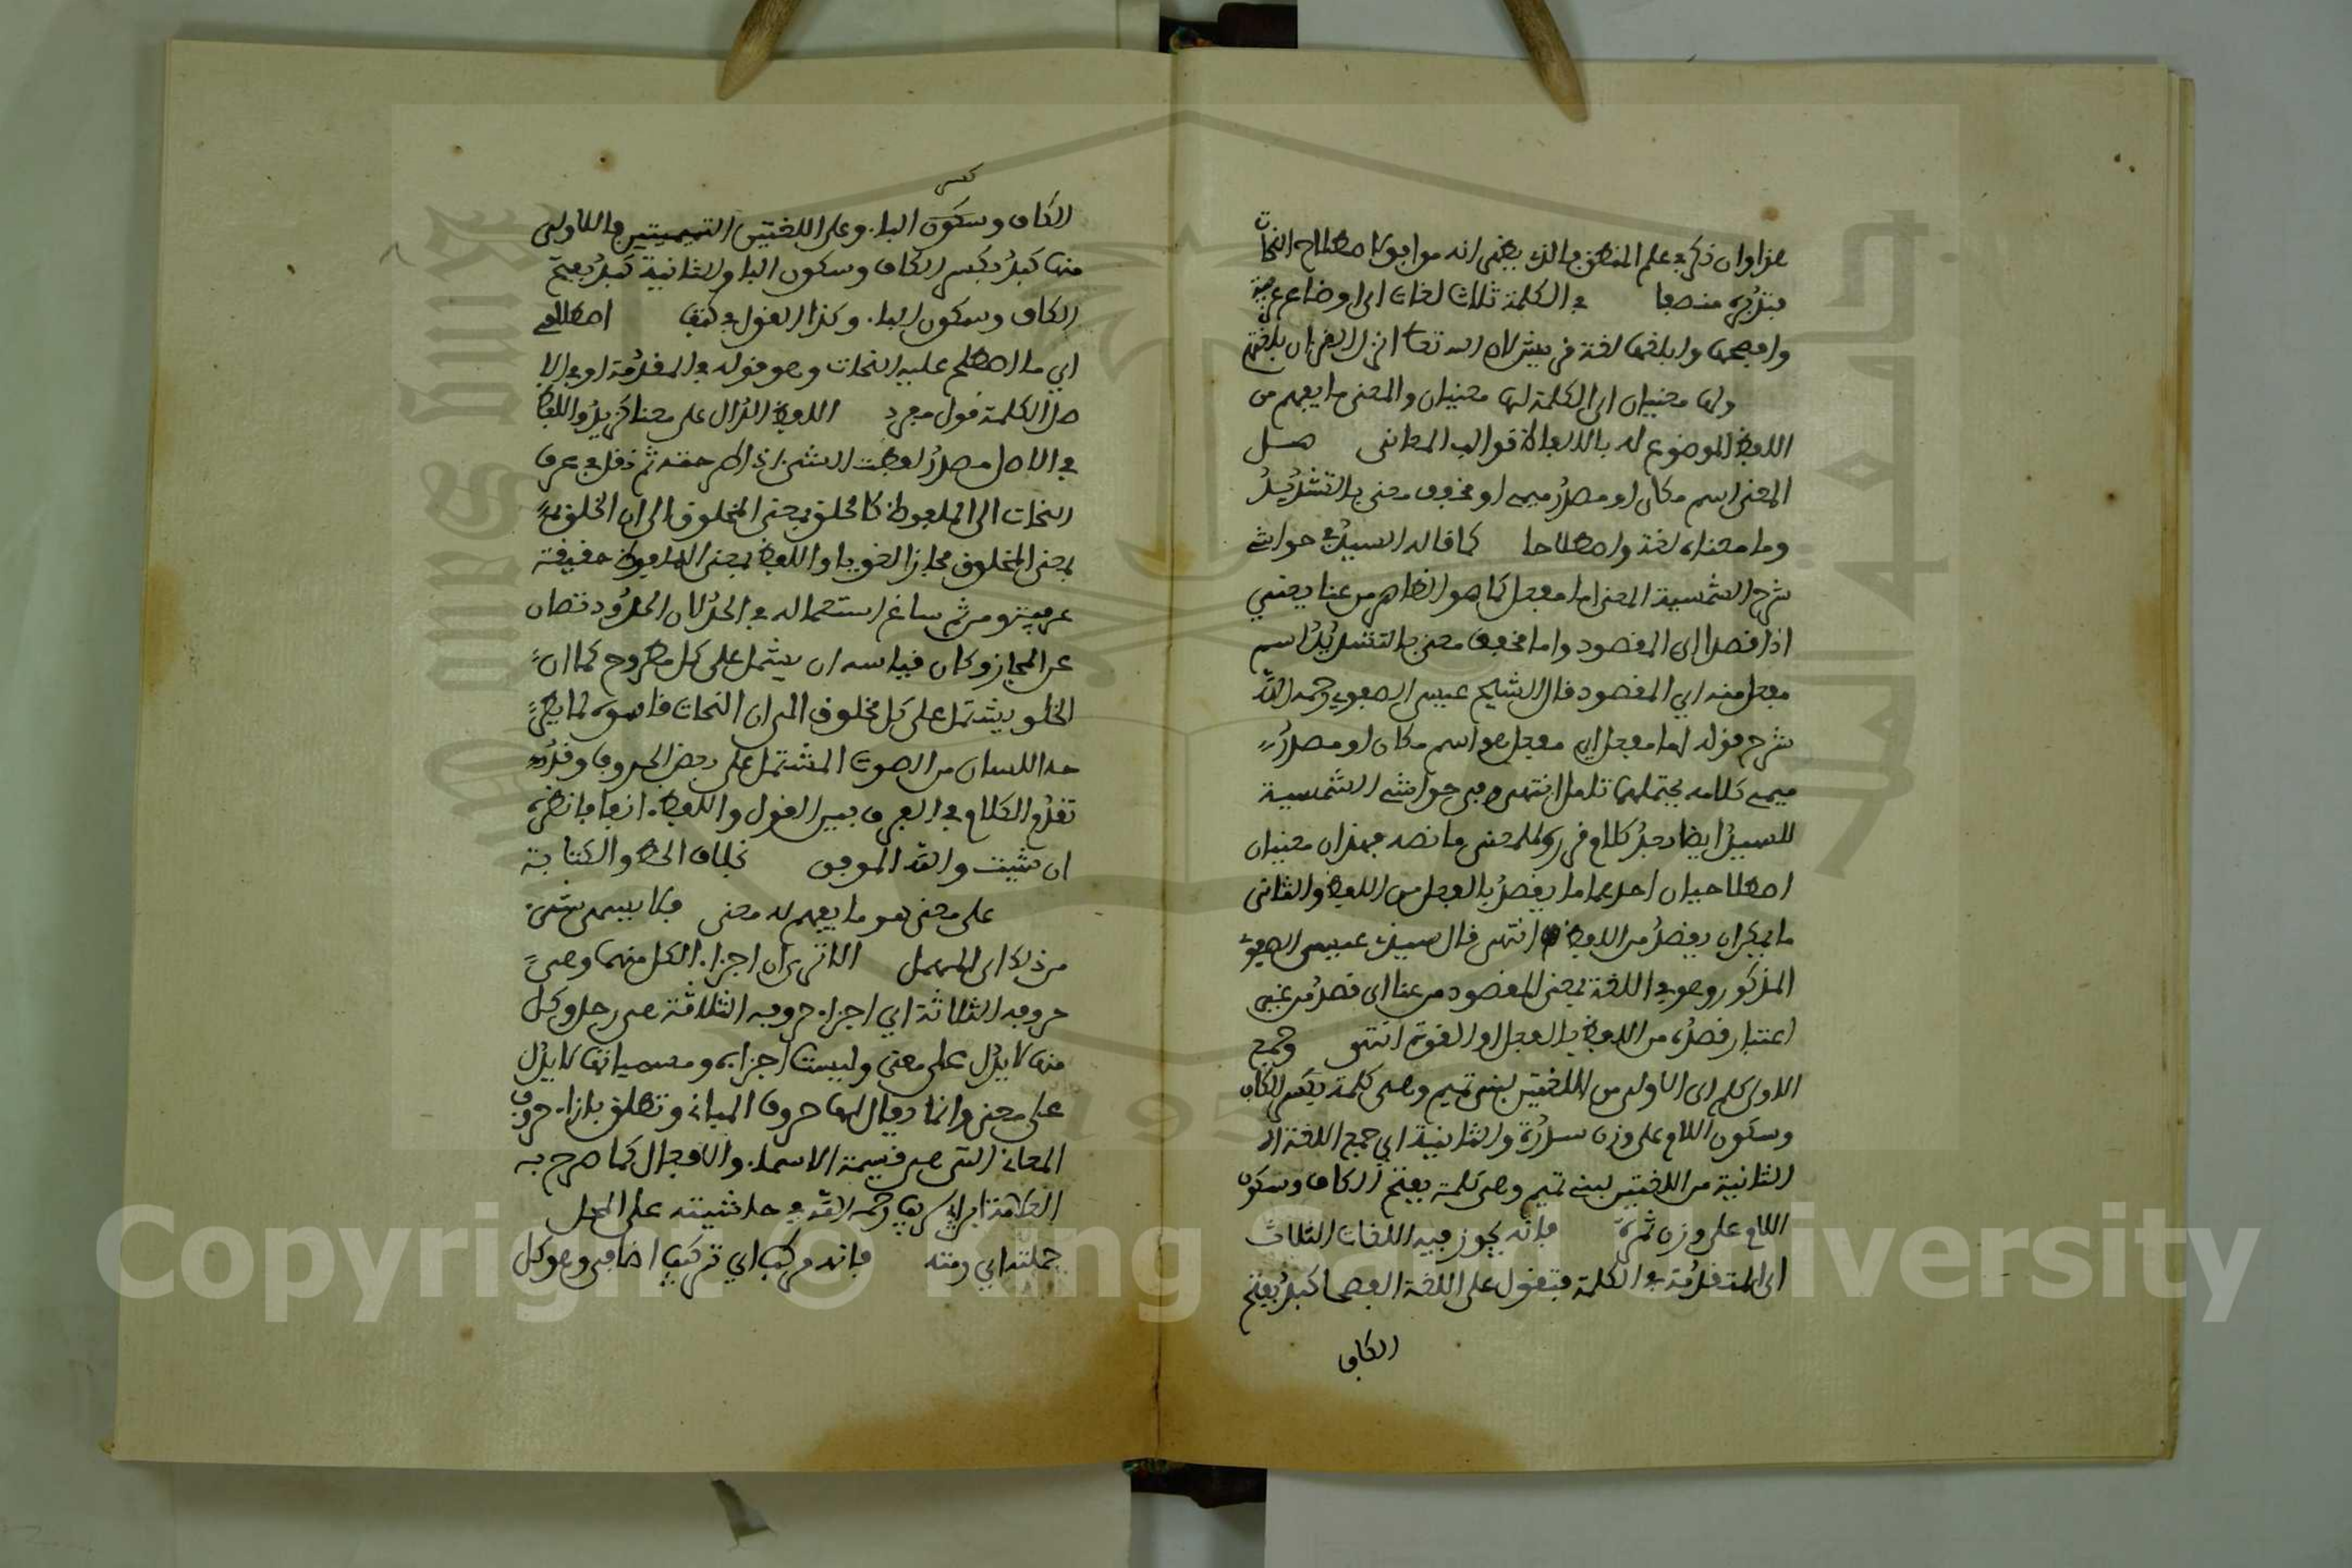 هذا وان ذكر في علم المنطق فالذي يظهر انه موافق لاصطلاح النحات
فتدبره منصفا في الكلمة ثلاث لغات اي اوضاع عربية
وافصحها وابلغها لغة قريش لان الله تعالى انزل القرءان بلغتهم
ولها معنيان اي الكلمة لها معنيان والمعنى ما يفهم من
اللفظ الموضوع له بالالفاظ قوالب المعاني هل
المعنى اسم مكان او مصدر ميمي او مخفف معنى بالتشديد
وما معناه لغة واصطلاحا كما قاله السيد في حواشي
شرح الشمسية المعنى اما مفعل كما هو الظاهر من عنا يعني
اذا قصد اي المقصود واما مخفف معني بالتشديد اسم
مفعل منه اي المقصود قال الشيخ عيسى الصفوي رحمه الله
شرح قوله اما مفعل اي مفعل هو اسم مكان او مصدر
ميمي كلامه يحتملهما تامل انتهى وفي حواشي الشمسية
للسيد ايضا بعد كلام قرره للمعنى ما نصه فهذان معنيان
اصطلاحيان احدهما ما يقصد بالفعل من اللفظ والثاني
ما يمكن ان يقصد من اللفظ انتهى قال سيدي عيسى الصفوي
المذكور وهو في اللغة بمعنى المقصود من عنا اي قصد من غير
اعتبار قصده من اللفظ بالفعل او القوة انتهى وجمع
الاولى كلم اي الاولى من اللغتين لبني تميم وهي كلمة بكسر الكاف
وسكون اللام على وزن سدرة والثانية اي جمع اللغة ال
الثانية من اللغتين لبني تميم وهي كلمة بفتح الكاف وسكون
اللام على وزن ثمرة فانه يجوز فيه اللغات الثلاث
اي المتقدمة في الكلمة فتقول على اللغة الفصحا كبد بفتح
الكاف
كسر
الكاف وسكون البا. وعلى اللغتين التميميتين فاللاولى
منها كبد بكسر الكاف وسكون البا والثانية كبد بفتح
الكاف وسكون البا. وكذا القول في كتف اصطلاحي
اي ما اصطلح عليه النحات وهو قوله في المقدمة او في الا
صل الكلمة قول مفرد اللفظ الدال على معنا كزيد واللفظ
في الاصل مصدر لفظت الشيء اذا طرحته ثم نقل في عرف
النحات الى الملفوظ كالخلق بمعنى المخلوق الا ان الخلق
بمعنى المخلوق مجاز لغويا واللفظ بمعنى الملفوظ حقيقة
عرفية ومن ثم ساغ استعماله في الحد لان الحدود تصان
عن المجاز وكان قياسه ان يشمل على كل مطروح كما ان
الخلق يشتمل على كل مخلوق الا ان النحات خصوه لما يطرحه
اللسان من الصوت المشتمل على بعض الحروف وقد
تقدم الكلام في الفرق بين القول واللفظ. انفا فانظره
ان شيت والله الموفق بخلاف الخط والكتابة
على معنى هو ما يفهم له معنى فلا يسمى شيء.
من ذلك اي المهمل الا ترى ان اجزا. الكل منهما وهي
حروفه الثلاثة اي اجزا. حروفه الثلاثة هي رجل وكل
منها لا يدل على معنى وليست اجزايه ومسمياتها لا يدل
على معنى وانما يقال لها حروف المباني وتطلق بازا. حروف
المعاني التي هي قسيمة الاسما. والافعال كما صرح به
العلامة ابن ابي شريف رحمه الله في حاشيته على المحل
جملته اي رمته فانه مركب اي تركيب اضافي وهو كل
Copyright © King Saud University
1957